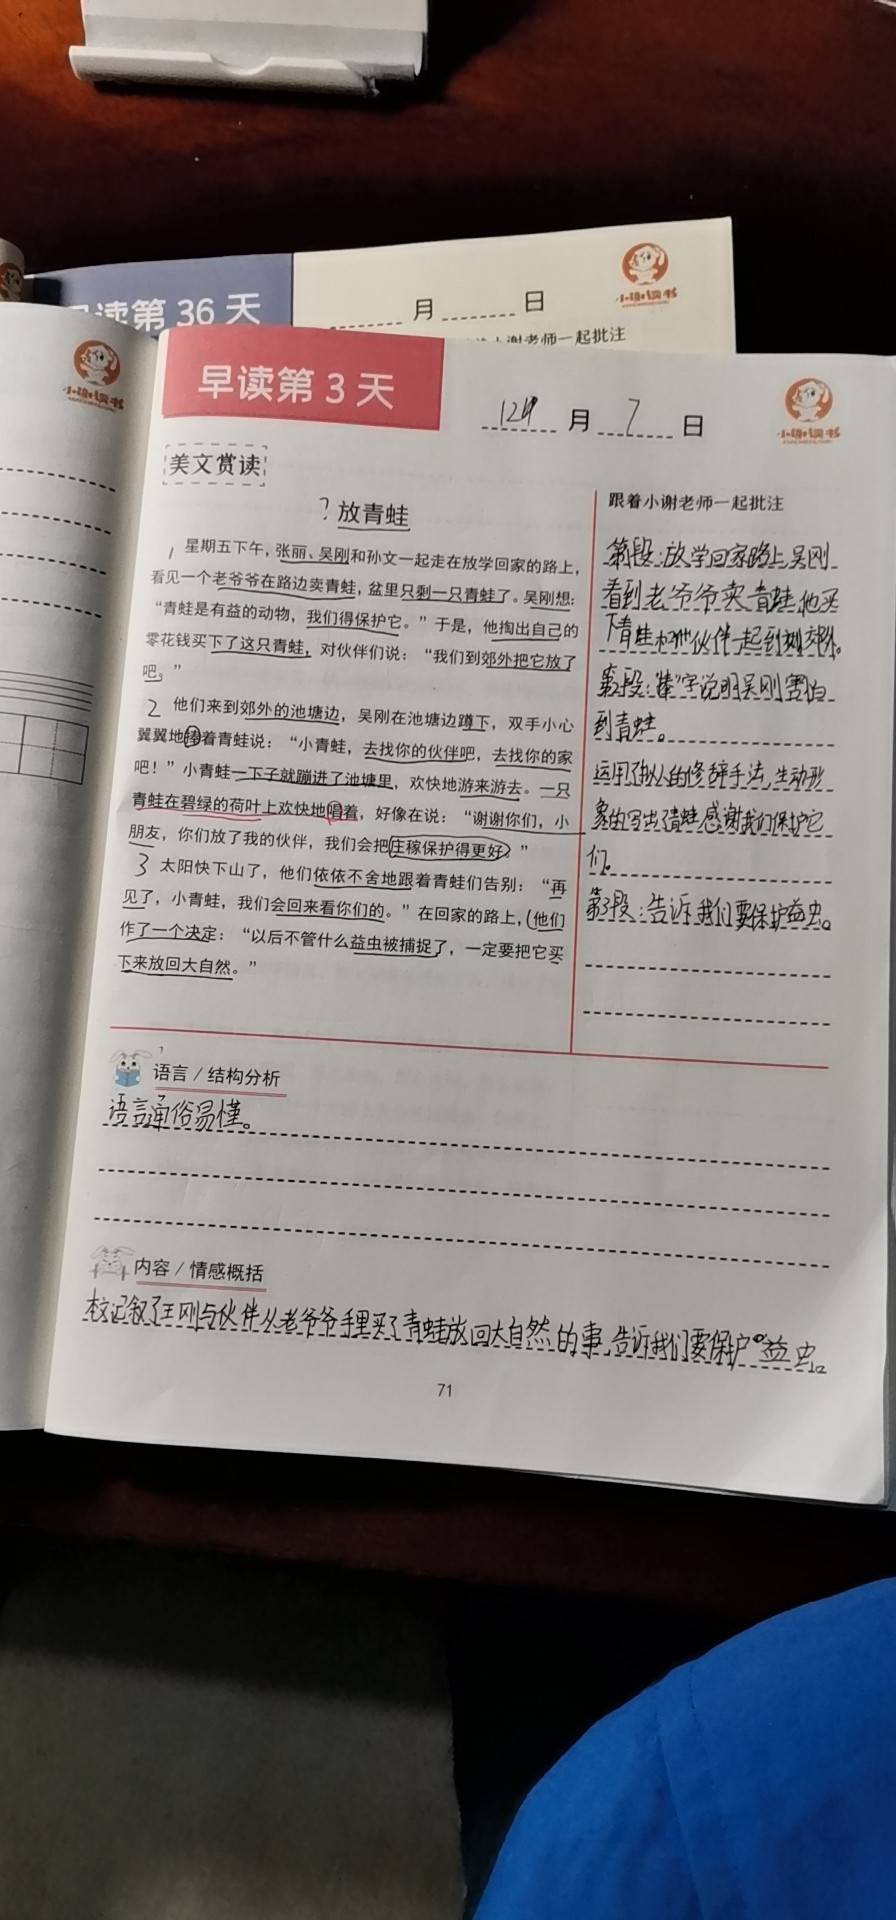 读第 36 天
月 日
小谢读书
小谢老师一起批注
小谢读书
早读第 3 天
12 月 7 日
小谢读书
美文赏读
? 放青蛙
跟着小谢老师一起批注
1 星期五下午，张丽、吴刚和孙文一起走在放学回家的路上，
看见一个老爷爷在路边卖青蛙，盆里只剩一只青蛙了。吴刚想：
“青蛙是有益的动物，我们得保护它。”于是，他掏出自己的
零花钱买下了这只青蛙，对伙伴们说：“我们到郊外把它放了
吧。”
2 他们来到郊外的池塘边，吴刚在池塘边蹲下，双手小心
翼翼地捧着青蛙说：“小青蛙，去找你的伙伴吧，去找你的家
吧！”小青蛙一下子就蹦进了池塘里，欢快地游来游去。一只
青蛙在碧绿的荷叶上欢快地唱着，好像在说：“谢谢你们，小
朋友，你们放了我的伙伴，我们会把庄稼保护得更好。”
3 太阳快下山了，他们依依不舍地跟着青蛙们告别：“再
见了，小青蛙，我们会回来看你们的。”在回家的路上，他们
作了一个决定：“以后不管什么益虫被捕捉了，一定要把它买
下来放回大自然。”
第1段：放学回家路上，吴刚
看到老爷爷卖青蛙，他买
下青蛙和他伙伴一起到郊外。
第2段：“捧”字说明吴刚害怕
到青蛙。
运用了拟人的修辞手法，生动形
象的写出了青蛙感谢我们保护它
们。
第3段：告诉我们要保护益虫。
语言 / 结构分析
语言通俗易懂。
内容 / 情感概括
本文记叙了王刚与伙伴从老爷爷手里买了青蛙放回大自然的事，告诉我们要保护益虫。
71